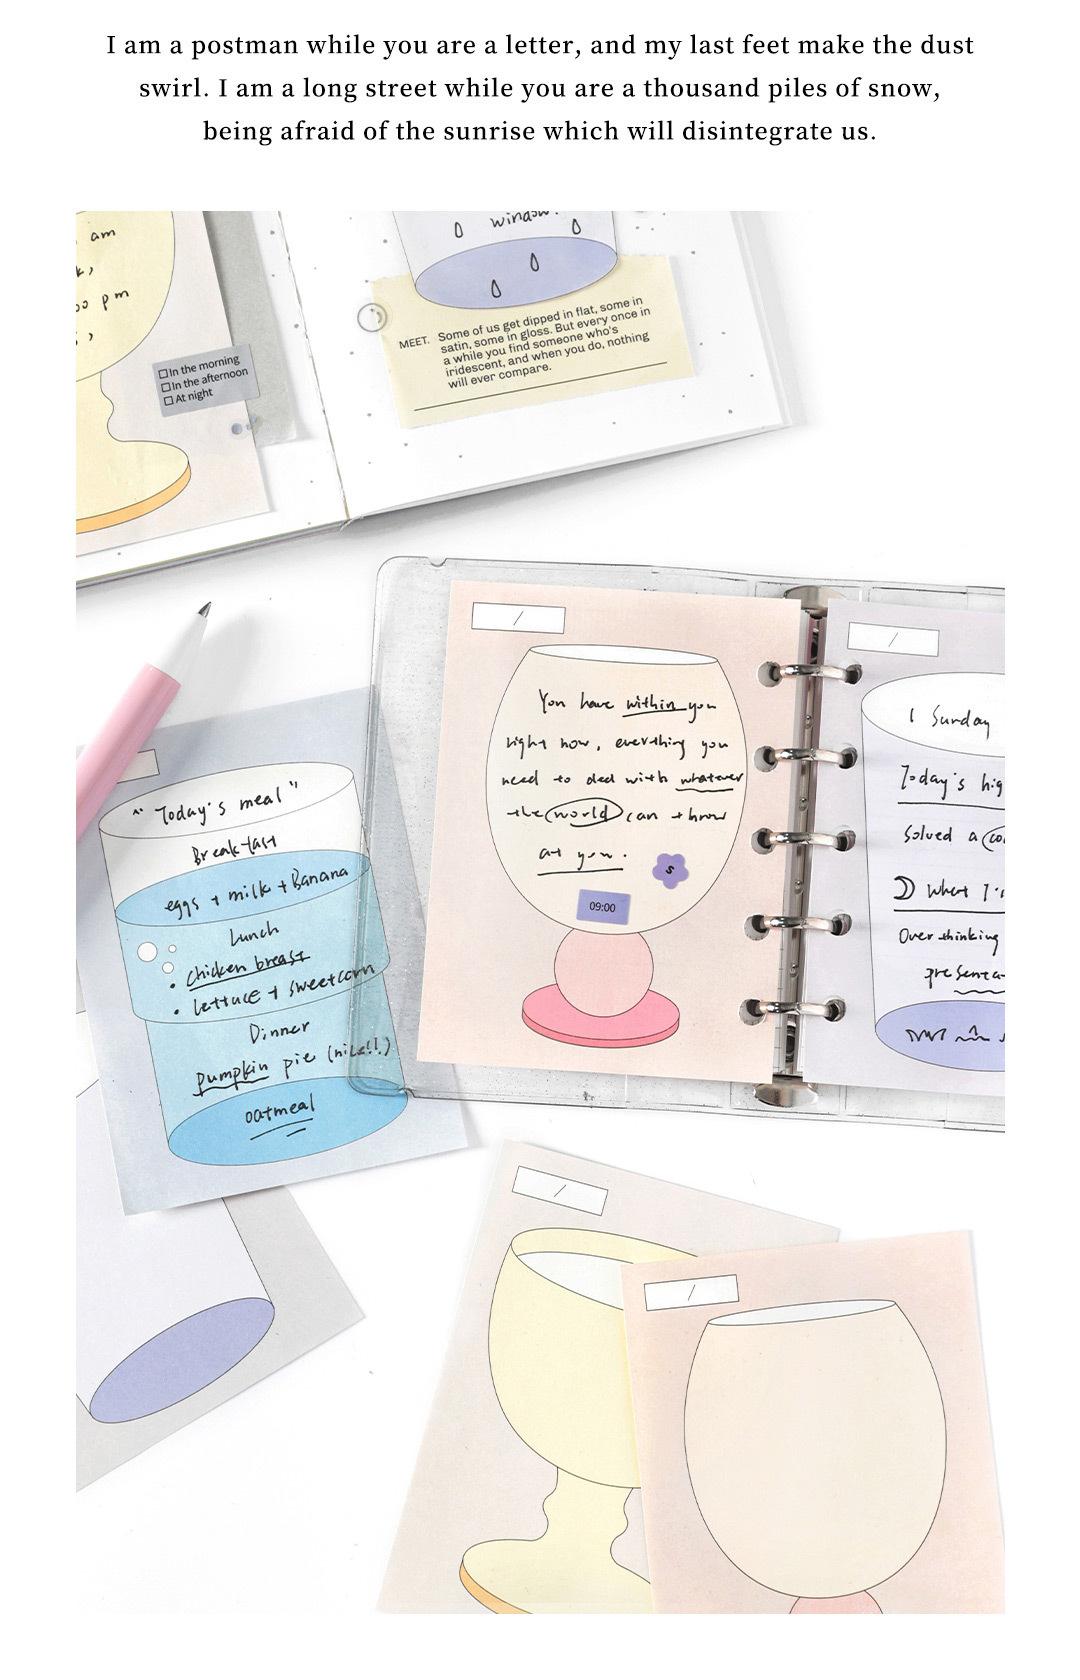 I am a postman while you are a letter, and my last feet make the dust
swirl. I am a long street while you are a thousand piles of snow,
being afraid of the sunrise which will disintegrate us.
am
pm
☐ In the morning
☐ In the afternoon
☐ At night
window.
MEET. Some of us get dipped in flat, some in
satin, some in gloss. But every once in
a while you find someone who's
iridescent, and when you do, nothing
will ever compare.
/
You have within you
right now, everthing you
need to deal with whatever
the world can throw
at you.
S
09:00
/
1 Sunday
Today's hig
Solved a co
what I'
Over thinking
presenta-
"Today's meal"
Breakfast
eggs + milk + Banana
Lunch
• chicken breast
• lettuce + sweetcorn
Dinner
pumpkin pie (nice!!)
oatmeal
/
/